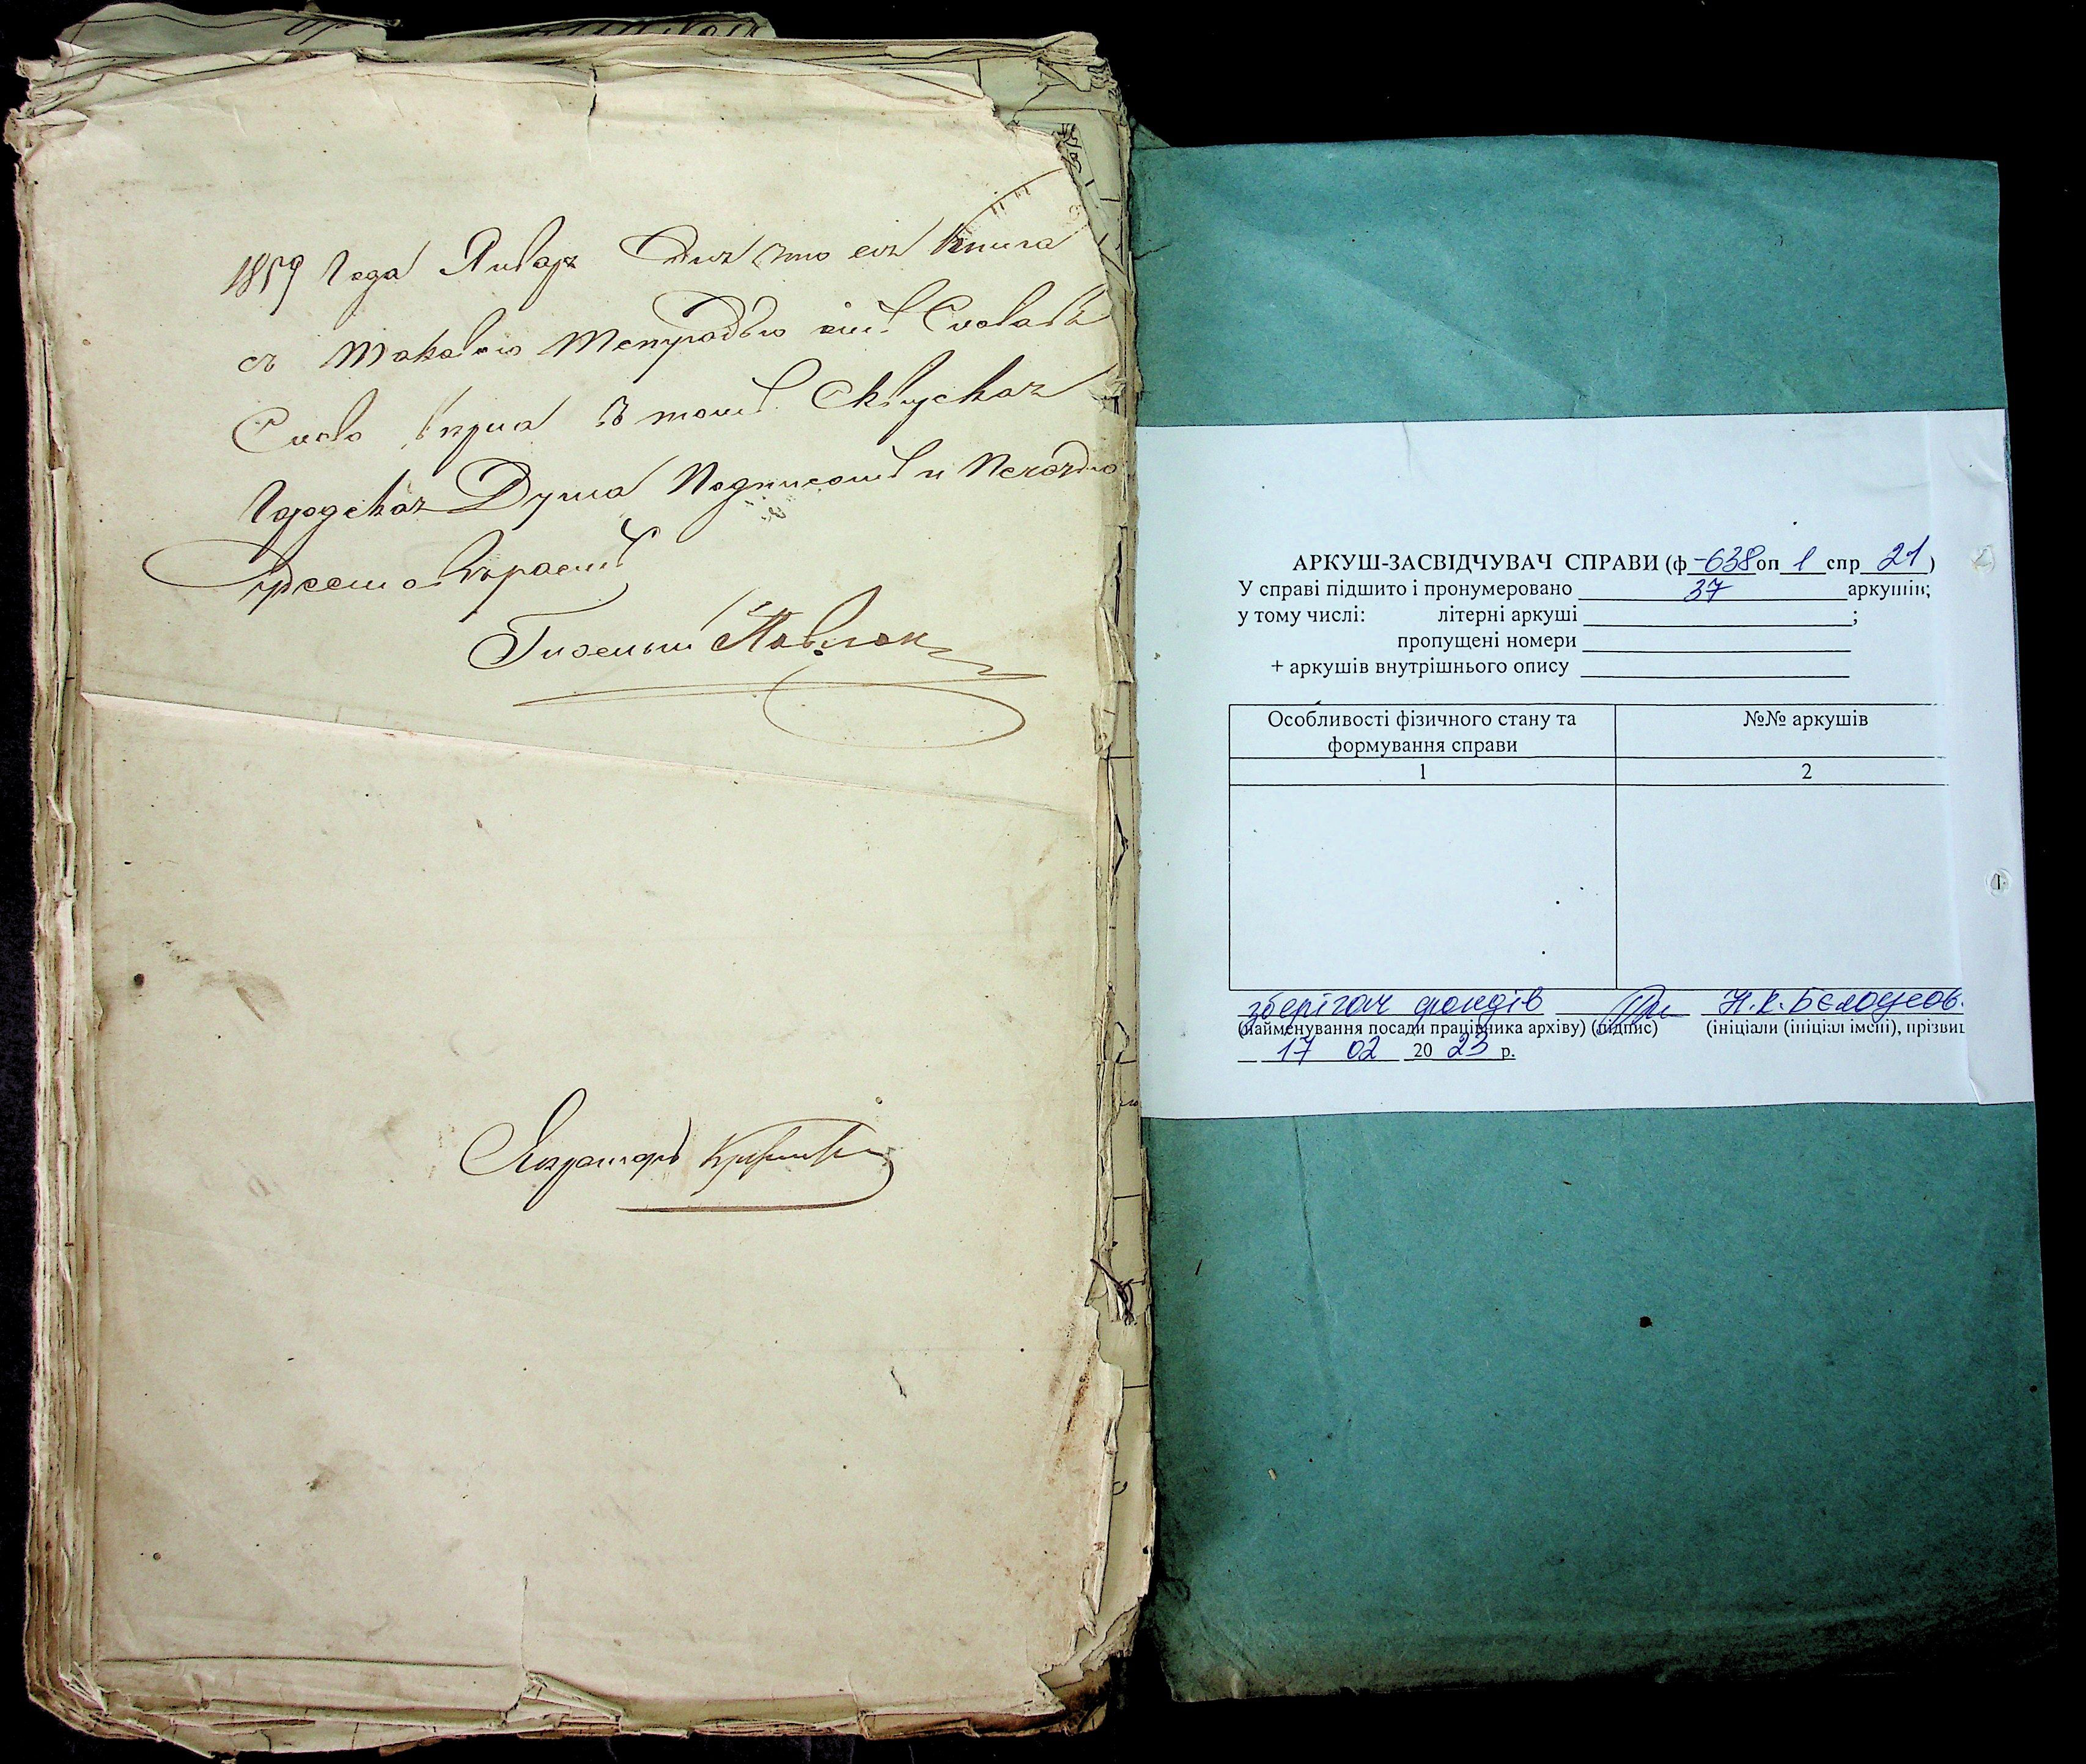 1859 Года Январ Дня что сия книга
съ таковою тетрадью отъ Слова въ
Слово верна въ томъ Сквирская
Городская Дума Подписомъ и Печатью
Гласный Павлюк
АРКУШ-ЗАСВІДЧУВАЧ СПРАВИ (ф -638 оп 1 спр 21)
У справі підшито і пронумеровано 37 аркушів;
у тому числі: літерні аркуші ;
пропущені номери
+ аркушів внутрішнього опису
Особливості фізичного стану та формування справи
№№ аркушів
1
2
зберігач фондів Н.К. Бєлоусов.
(найменування посади працівника архіву) (підпис) (ініціали (ініціал імені), прізвищ
17 02 2023 р.